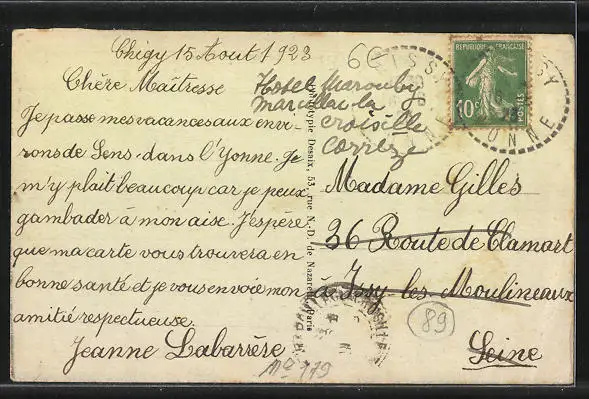 Chigy 15 Aout 1923
Chère Maîtresse
Je passe mes vacances aux envi-
rons de Sens dans l'Yonne. Je
m'y plait beaucoup car je peux
gambader à mon aise. J'espère
que ma carte vous trouvera en
bonne santé et je vous envoie mon
amitié respectueuse.
Jeanne Labarrèse
Hotel Marouby
marcillac la
croisille
corrèze
Phototypie Desaix, 53, rue N.-D. de Nazareth, Paris
REPUBLIQUE FRANÇAISE
10c
POSTES
YONNE
Madame Gilles
36 Route de Clamart
à Issy les Moulineaux
Seine
89